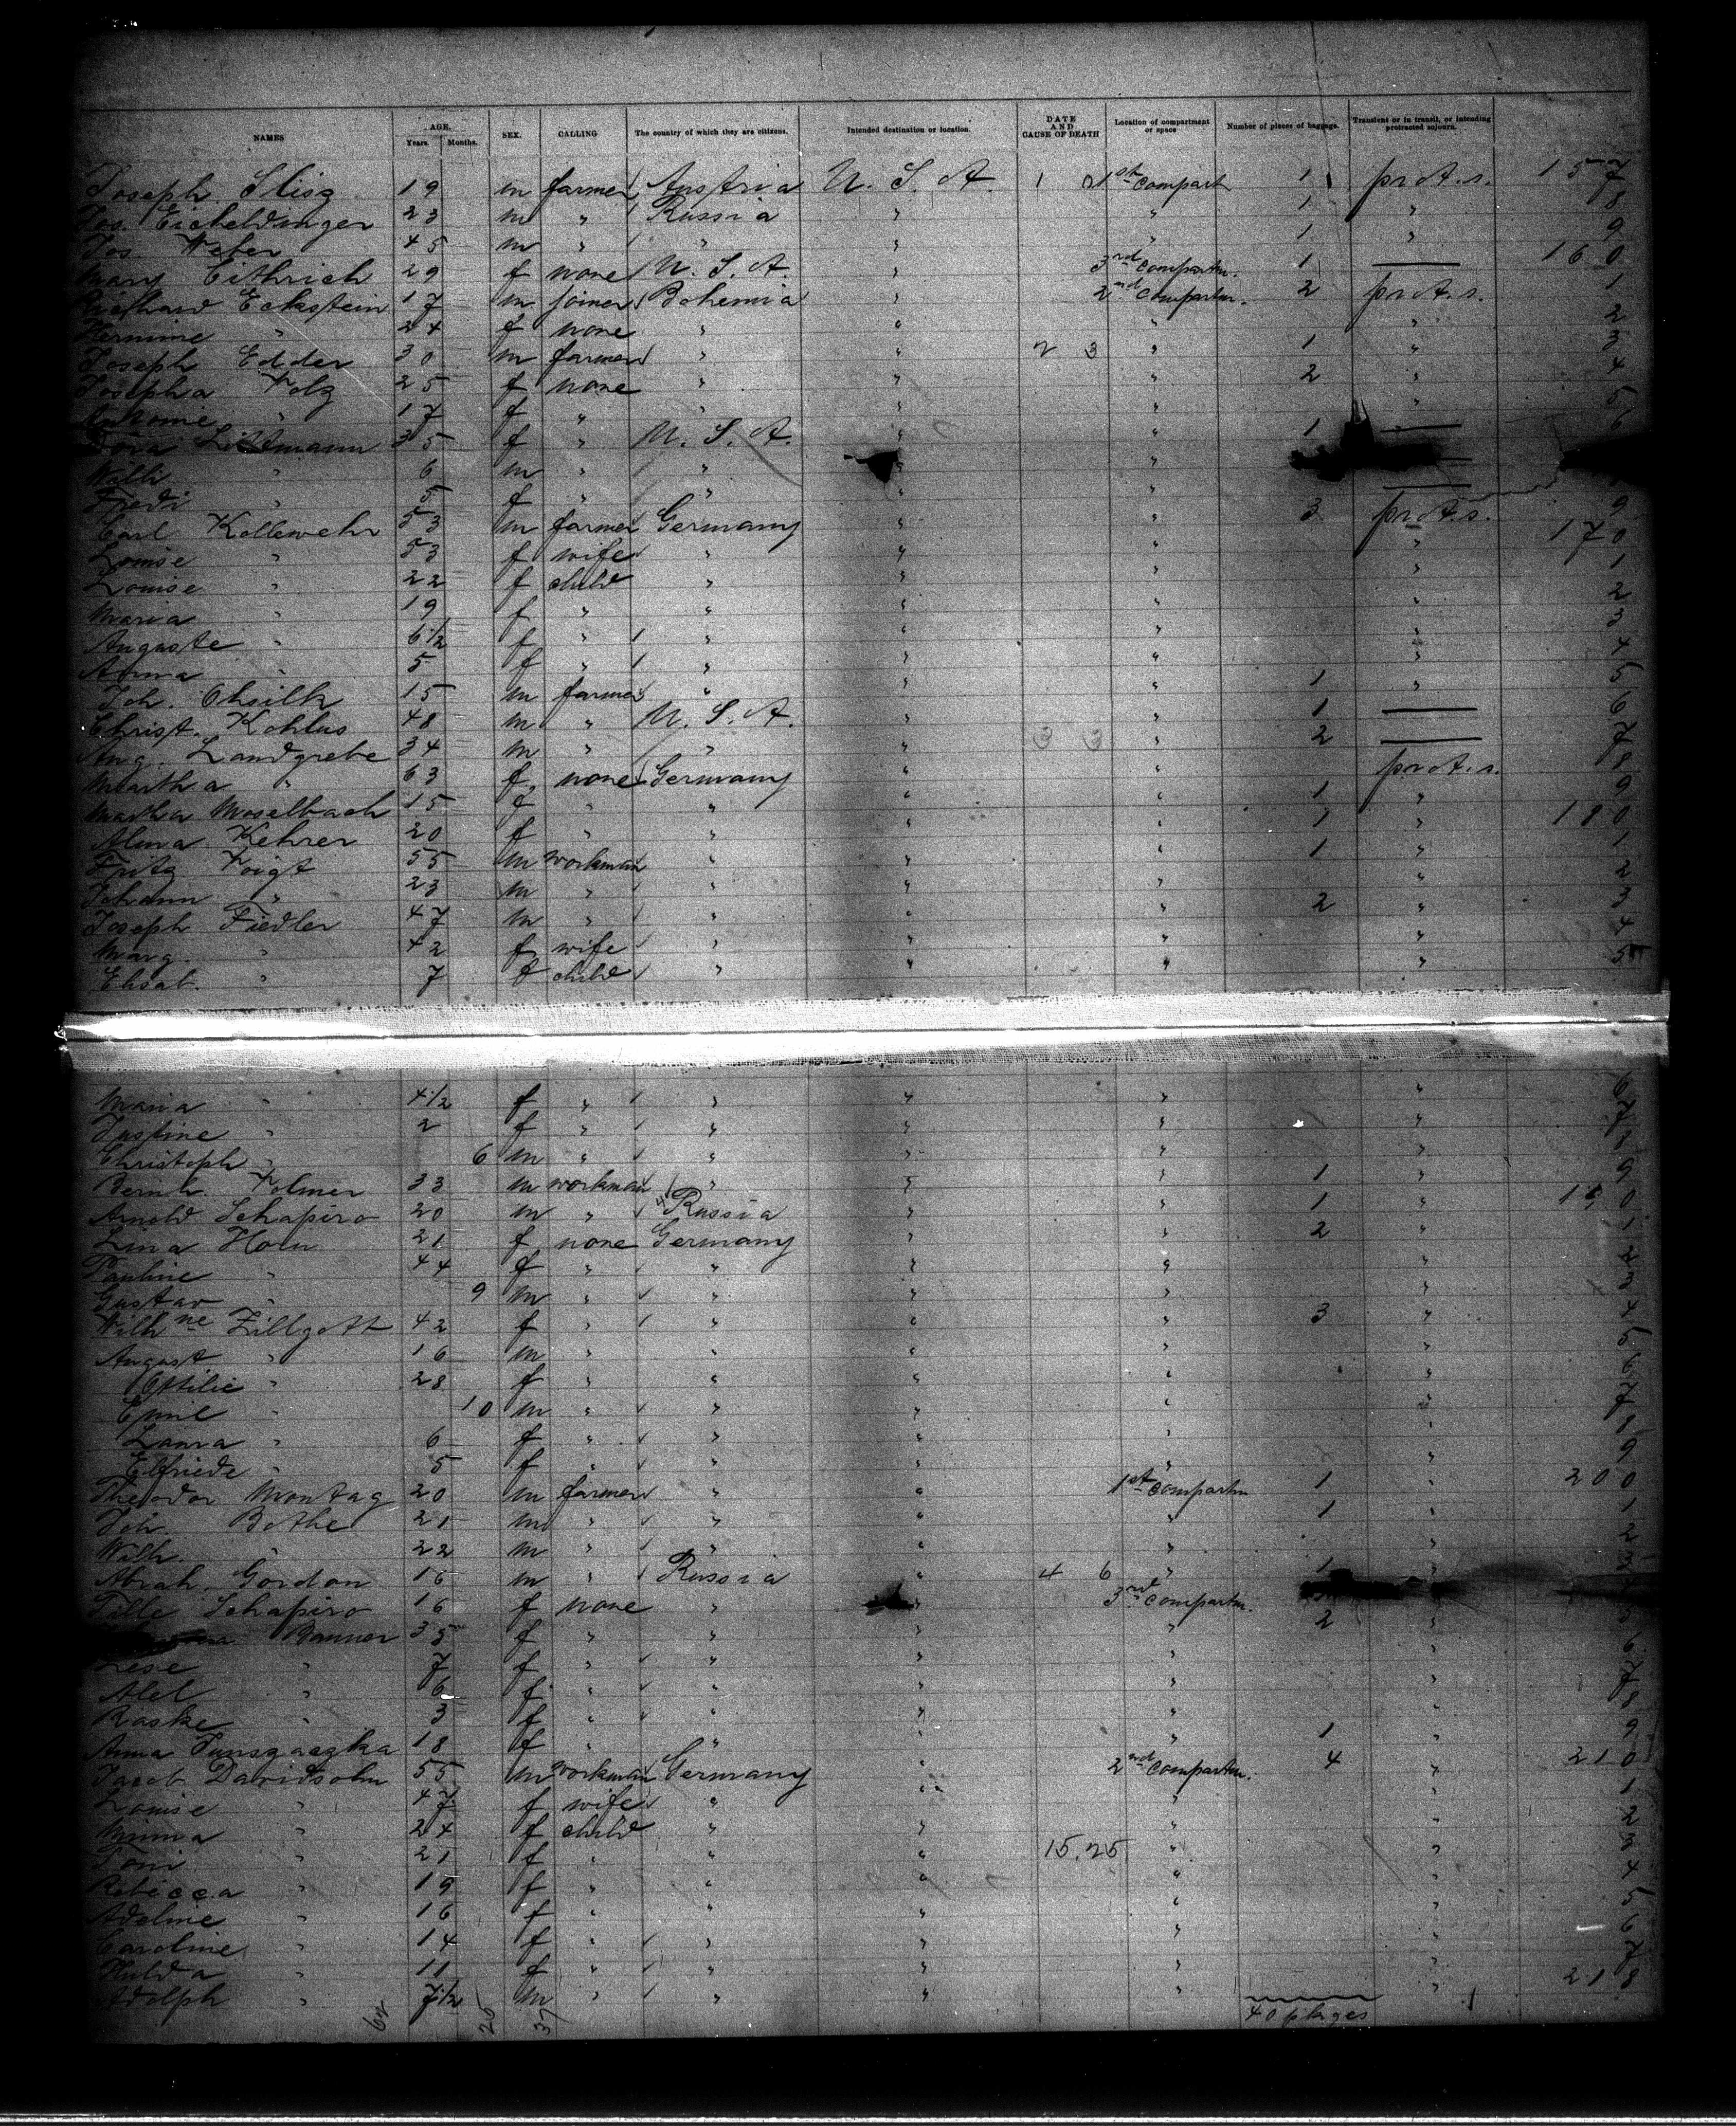 NAMES AGE. Years. Months. SEX. CALLING The country of which they are citizens. Intended destination or location. DATE AND CAUSE OF DEATH Location of compartment or space Number of pieces of baggage. Transient or in transit, or intending protracted sojourn.
Joseph Slisz 19 m farmer Austria U. S. A. 1 1st compart 1 protr.s. 157
Jos. Eicheldinger 23 m " Russia " " 1 " 8
Jos. Weber 45 m " " " " 1 " 9
Mary Eithrich 29 f none U. S. A. " 3rd compartm. 1 — 160
Richard Eckstein 17 m joiner Bohemia " 2nd compartm. 2 protr.s. 1
Hermine " 24 f none " " " " 2
Joseph Edder 30 m farmer " " 2 3 " 1 " 3
Josepha Volz 25 f none " " " 2 " 4
Antonie " 17 f " " " " " 5
Littmann 35 f " U. S. A. " " 1 — 6
Willi " 6 m " " " " —
Fredi " 5 f " " " " —
Carl Kollewehr 53 m farmer Germany " " 3 protr.s. 9
Louise " 53 f wife " " " " 170
Louise " 22 f child " " " " 1
Maria " 19 f " " " " " 2
Auguste " 6 1/2 f " " " " " 3
Anna " 5 f " " " " " 4
Joh. Ohsilk 15 m farmer " " " 1 " 5
Christ. Kohlus 48 m " U. S. A. " " 1 — 6
Aug. Landgrebe 34 m " " " 3 3 " 2 — 7
Martha " 63 f none Germany " " protr.s. 8
Martha Moselbach 15 f " " " " 1 " 9
Alma Kehrer 20 f " " " " 1 " 180
Fritz Voigt 55 m workman " " " 1 " 1
Johann " 23 m " " " " " 2
Joseph Fiedler 47 m " " " " 2 " 3
Marg. " 42 f wife " " " " 4
Elisab. " 7 f child " " " " 5
Maria " 4 1/2 f " " " " " 6
Justine " 2 f " " " " " 7
Christoph " 6 m " " " " " 8
Bernh. Volmer 33 m workman " " " 1 " 9
Arnold Schapiro 20 m " Russia " " 1 " 190
Lina Horn 21 f none Germany " " 2 " 1
Pauline " 44 f " " " " " 2
Gustav " 9 m " " " " " 3
Wilhne Zillgott 42 f " " " " 3 " 4
August " 16 m " " " " " 5
Ottilie " 28 f " " " " " 6
Emil " 10 m " " " " " 7
Laura " 6 f " " " " " 8
Elfriede " 5 f " " " " " 9
Theodor Montag 20 m farmer " " 1st compartm 1 " 200
Joh. Bothe 21 m " " " " 1 " 1
Wilh. " 22 m " " " " " 2
Abrah. Gordon 16 m " Russia " 4 6 " 1 " 3
Tille Schapiro 16 f none " " 3rd compartm. "
Banner 35 f " " " " 2 " 5
Lese " 7 f " " " " " 6
Alel " 6 f " " " " " 7
Raske " 3 f " " " " " 8
Anna 18 f " " " " 1 " 9
Jacob Davidsohn 55 m workman Germany " 2nd compartm. 4 " 210
Louise " 47 f wife " " " " 1
Minna " 24 f child " " " " 2
Toni " 21 f " " " 15.25 " " 3
Rebecca " 19 f " " " " " 4
Adeline " 16 f " " " " " 5
Caroline " 14 f " " " " " 6
Hulda " 11 f " " " " " 7
Adolph " 7 1/2 m " " " " " 218
62 25 37 40 pkges